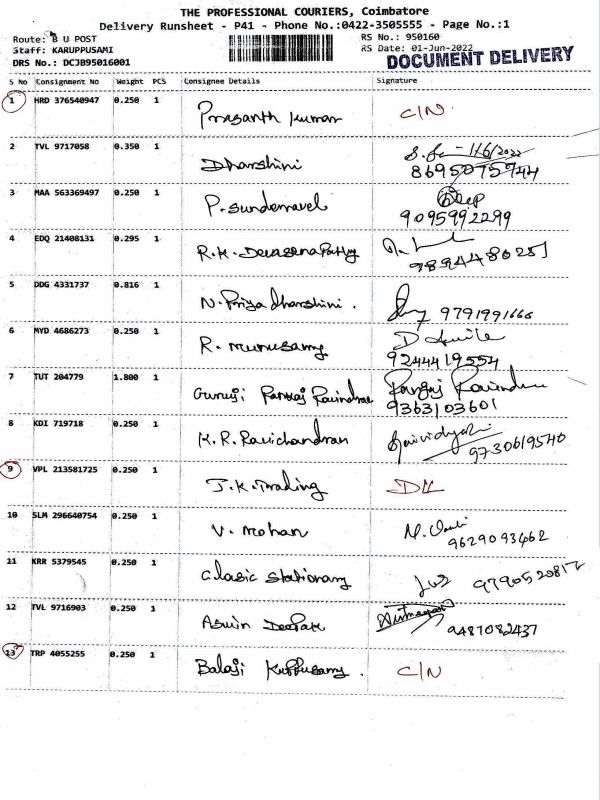 THE PROFESSIONAL COURIERS, Coimbatore
Delivery Runsheet - P41 - Phone No.:0422-3505555 - Page No.:1
Route: B U POST
RS No.: 950160
Staff: KARUPPUSAMI
RS Date: 01-Jun-2022
DRS No.: DCJB95016001
DOCUMENT DELIVERY
S No Consignment No Weight PCS Consignee Details Signature
1 HRD 376540947 0.250 1 Prasanth Kumar C/N
2 TVL 9717058 0.350 1 Dharshini 11/6/2022
8695075744
3 MAA 563369497 0.250 1 P. Sundernavel
9095992299
4 EDQ 21408131 0.295 1 R.K. Devasenapathy
9894480251
5 DDG 4331737 0.816 1 N. Priya dharshini. 9791991666
6 MYD 4686273 0.250 1 R. Murusamy
9244419554
7 TUT 204779 1.800 1 Guruji Pankaj Ravindran Pankaj
9363103601
8 KDI 719718 0.250 1 K.R. Ravichandran
9730619540
9 VPL 213581725 0.250 1 J.K. Trading DL
10 SLM 296640754 0.250 1 V. Mohan
9629093462
11 KRR 5379545 0.250 1 Clasic Stationary 9790520817
12 TVL 9716903 0.250 1 Aswin Deepak
9487082437
13 TRP 4055255 0.250 1 Balaji Kuppusamy. C/N